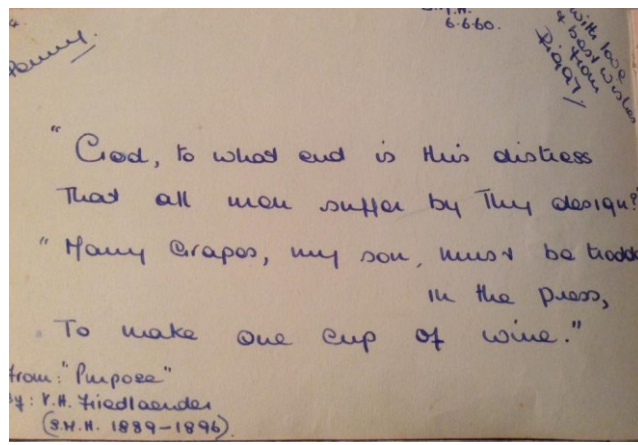 6.6.60.
with love
& best wishes
from
"God, to what end is this distress
That all men suffer by Thy design?"
"Many Grapes, my son, must be trodde
in the press,
To make one cup of wine."
from: "Purpose"
By: V.H. Friedlaender
(S.W.H. 1889-1896).